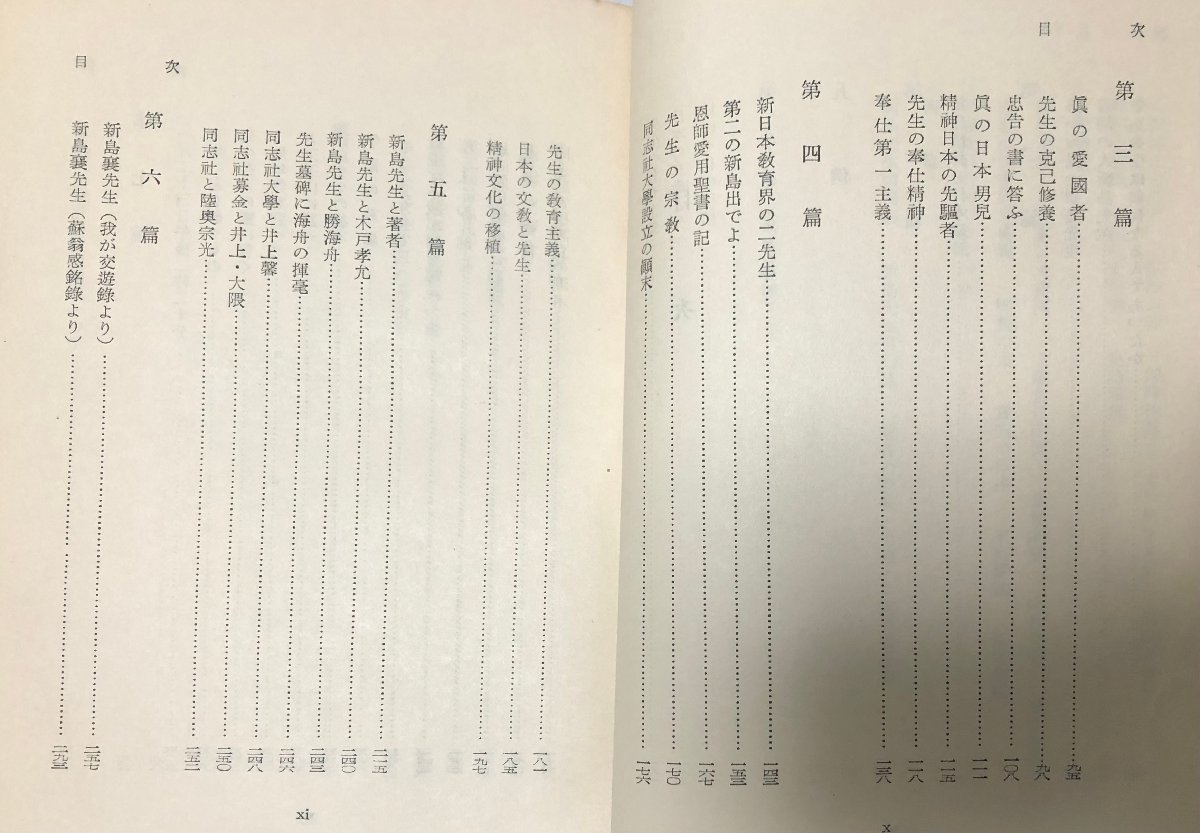 目次
第三篇
眞の愛國者…………九五
先生の克己修養…………九八
忠告の書に答ふ…………一〇八
眞の日本男兒…………一一一
精神日本の先驅者…………一一五
先生の奉仕精神…………一一八
奉仕第一主義…………一三八
第四篇
新日本敎育界の二先生…………一四三
第二の新島出でよ…………一五三
恩師愛用聖書の記…………一六七
先生の宗敎…………一七〇
同志社大學設立の顚末…………一七六
x
先生の敎育主義…………一八一
日本の文敎と先生…………一八五
精神文化の移植…………一九七
第五篇
新島先生と著者…………二一五
新島先生と木戸孝允…………二四〇
新島先生と勝海舟…………二四三
先生墓碑に海舟の揮毫…………二四六
同志社大學と井上馨…………二四八
同志社募金と井上・大隈…………二五〇
同志社と陸奥宗光…………二五二
第六篇
新島襄先生（我が交遊錄より）…………二五七
新島襄先生（蘇翁感銘錄より）…………二九三
目次
xi